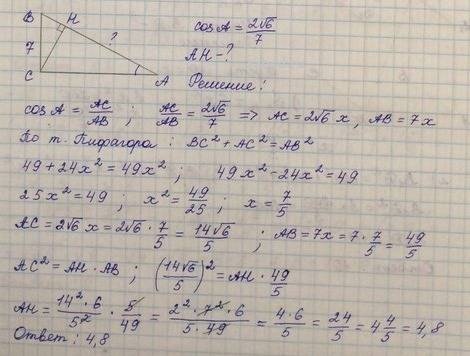 B H
? cosA = 2√6/7
7 AH - ?
C A Решение:
cosA = AC/AB ; AC/AB = 2√6/7 => AC = 2√6 x, AB = 7x
По т. Пифагора: BC² + AC² = AB²
49 + 24x² = 49x² ; 49x² - 24x² = 49
25x² = 49 ; x² = 49/25 ; x = 7/5
AC = 2√6 x = 2√6 · 7/5 = 14√6/5 ; AB = 7x = 7 · 7/5 = 49/5
AC² = AH · AB ; (14√6/5)² = AH · 49/5
AH = 14² · 6/5² · 5/49 = 2² · 7² · 6/5 · 49 = 4 · 6/5 = 24/5 = 4 4/5 = 4,8
Ответ: 4,8